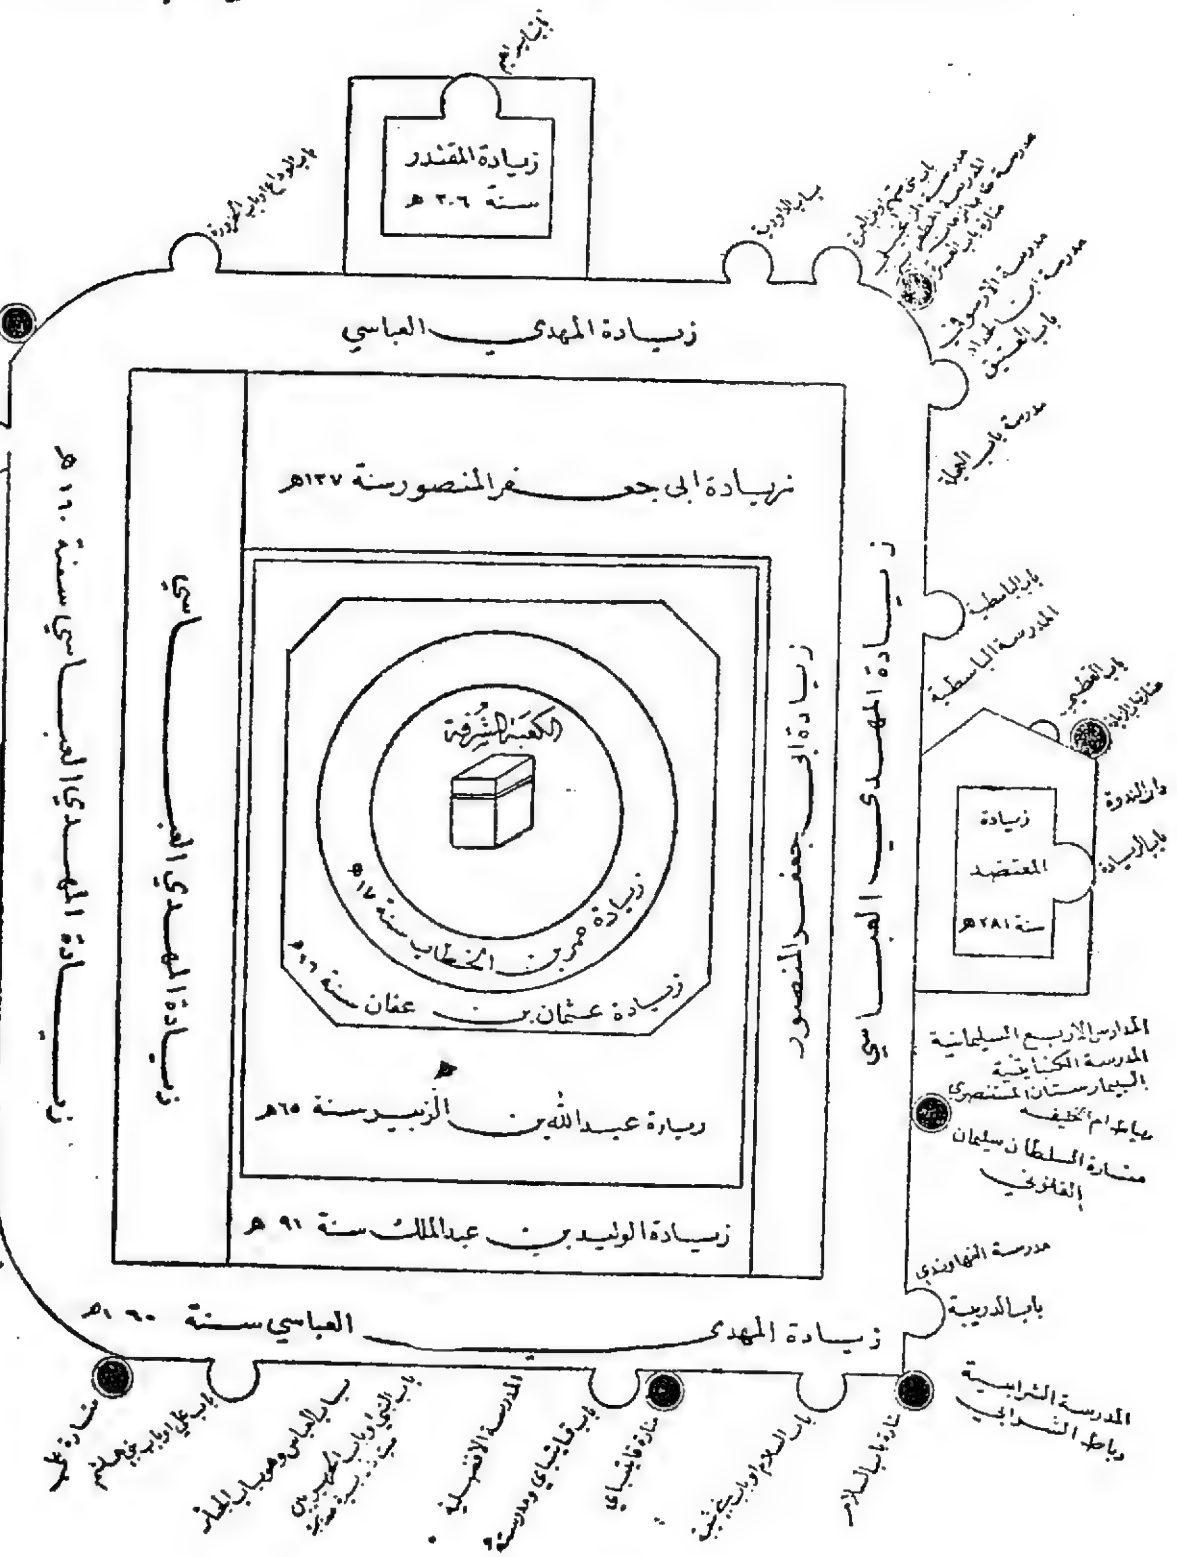 باب إبراهيم
زيادة المقتدر
سنة ٣٠٦ ه
باب الوداع او باب الحزورة
باب الاوردية
مدرسة الارسوفي
مدرسة ابن الحداد
باب العتيق
مدرسة باب العجلة
زيادة المهدي العباسي
زيادة ابى جعفر المنصور سنة ١٣٧ه
زيادة المهدي العباسي سنة ١٦٠ ه
زيادة المهدي العباسي
زيادة ابى جعفر المنصور
زيادة المهدي العباسي
الكعبة المشرفة
زيادة عمر بن الخطاب سنة ١٧ه
زيادة عثمان بن عفان سنة ٢٦ه
زيادة عبد الله بن الزبير سنة ٦٥ه
زيادة الوليد بن عبد الملك سنة ٩١ ه
زيادة المهدى العباسي سنة ١٦٠ه
باب الباسطية
المدرسة الباسطية
باب القطبي
منارة باب الزيادة
دار الندوة
باب الزيادة
زيادة
المعتضد
سنة ٢٨١ه
المدارس الاربع السليمانية
المدرسة الكنبايتية
البيمارستان المستنصري
رباط ام الخليفه
منارة السلطان سليمان
القانوني
مدرسة النهاوندي
باب الدريبة
المدرسة الشرابية
رباط الشرابي
منارة باب السلام
باب السلام او باب بني شيبة
منارة قايتباي
باب قايتباي ومدرسته
المدرسة الافضلية
باب النبي او باب الحريريين
باب العباس وهو باب الجنائز
باب علي او باب بني هاشم
منارة علي